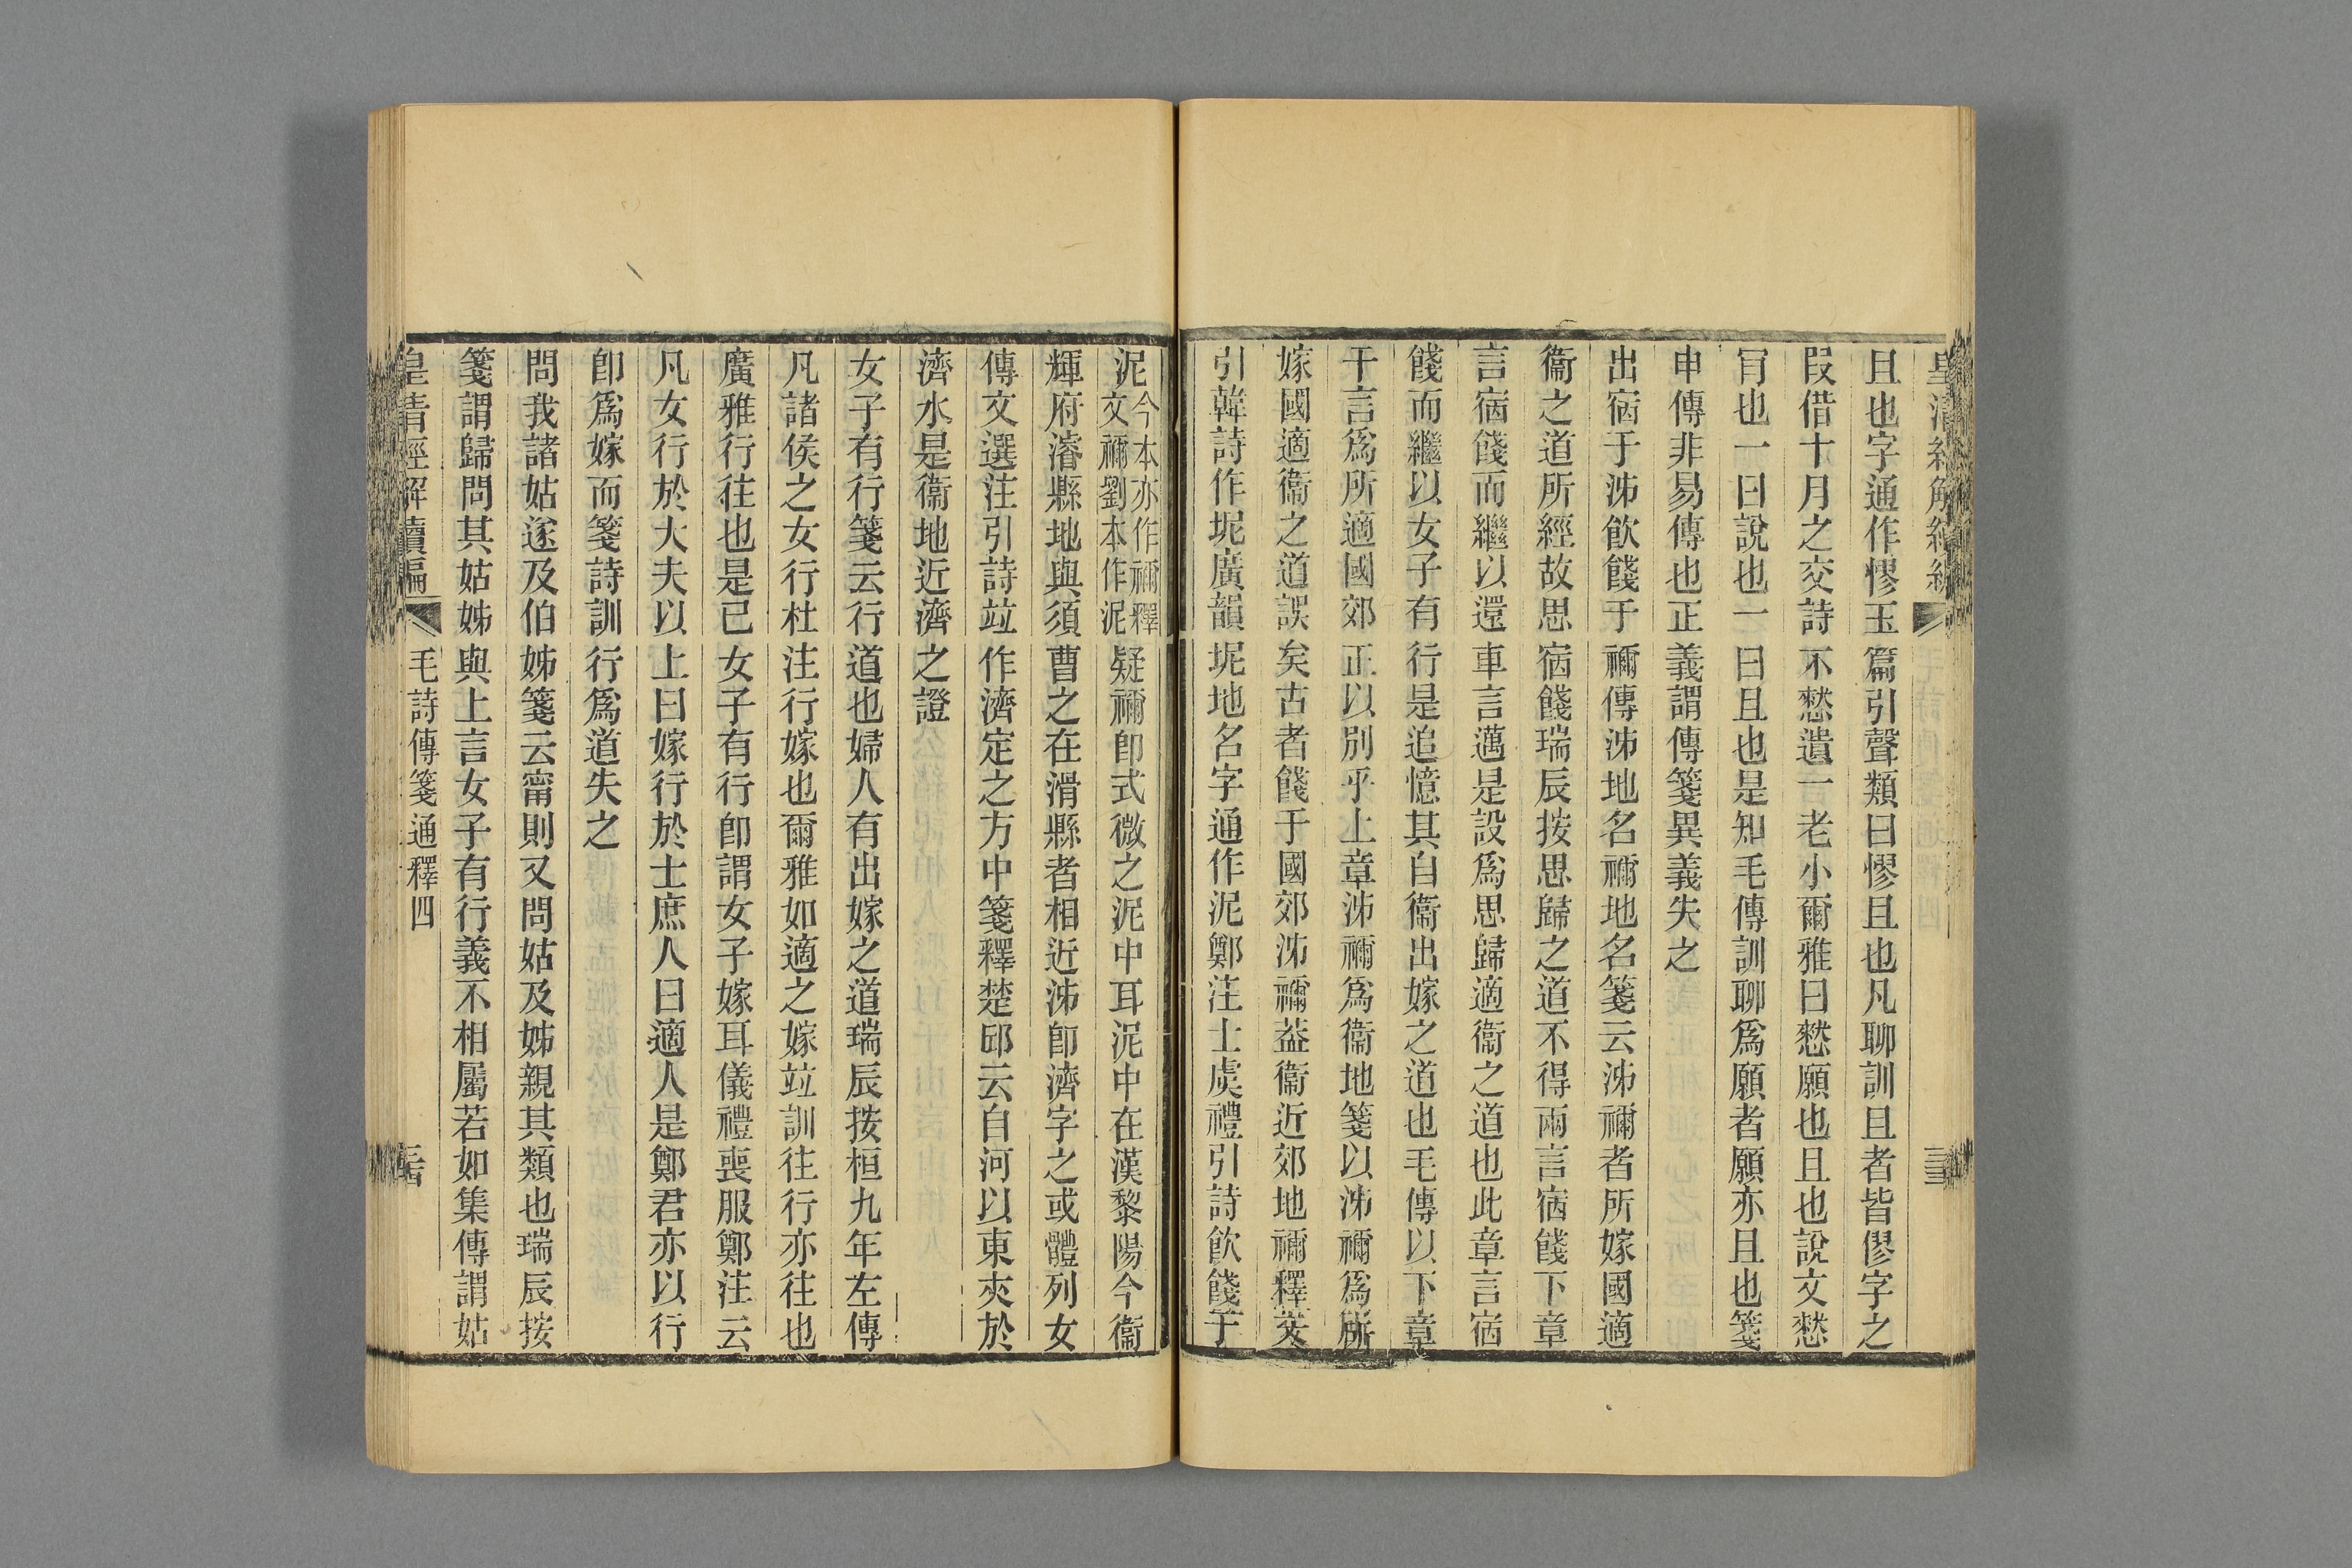 且也字通作憀玉篇引聲類曰憀且也凡聊訓且者皆僇字之
叚借十月之交詩不憖遺一老小爾雅曰憖願也且也說文憖
肎也一曰說也一曰且也是知毛傳訓聊爲願者願亦且也箋
申傳非易傳也正義謂傳箋異義失之
出宿于泲飮餞于禰傳泲地名禰地名箋云泲禰者所嫁國適
衞之道所經故思宿餞瑞辰按思歸之道不得兩言宿餞下章
言宿餞而繼以還車言邁是設爲思歸適衞之道也此章言宿
餞而繼以女子有行是追憶其自衞出嫁之道也毛傳以下章
干言爲所適國郊正以別乎上章泲禰爲衞地箋以泲禰爲所
嫁國適衞之道誤矣古者餞于國郊泲禰葢衞近郊地禰釋文
引韓詩作坭廣韻坭地名字通作泥鄭注士虞禮引詩飮餞于
泥今本亦作禰釋文禰劉本作泥疑禰卽式微之泥中耳泥中在漢黎陽今衞
輝府濬縣地與須曹之在滑縣者相近泲卽濟字之或體列女
傳文選注引詩竝作濟定之方中箋釋楚邱云自河以東夾於
濟水是衞地近濟之證
女子有行箋云行道也婦人有出嫁之道瑞辰按桓九年左傳
凡諸侯之女行杜注行嫁也爾雅如適之嫁竝訓往行亦往也
廣雅行往也是已女子有行卽謂女子嫁耳儀禮喪服鄭注云
凡女行於大夫以上曰嫁行於士庶人曰適人是鄭君亦以行
卽爲嫁而箋詩訓行爲道失之
問我諸姑遂及伯姊箋云甯則又問姑及姊親其類也瑞辰按
箋謂歸問其姑姊與上言女子有行義不相屬若如集傳謂姑
皇清經解續編 毛詩傳箋通釋四